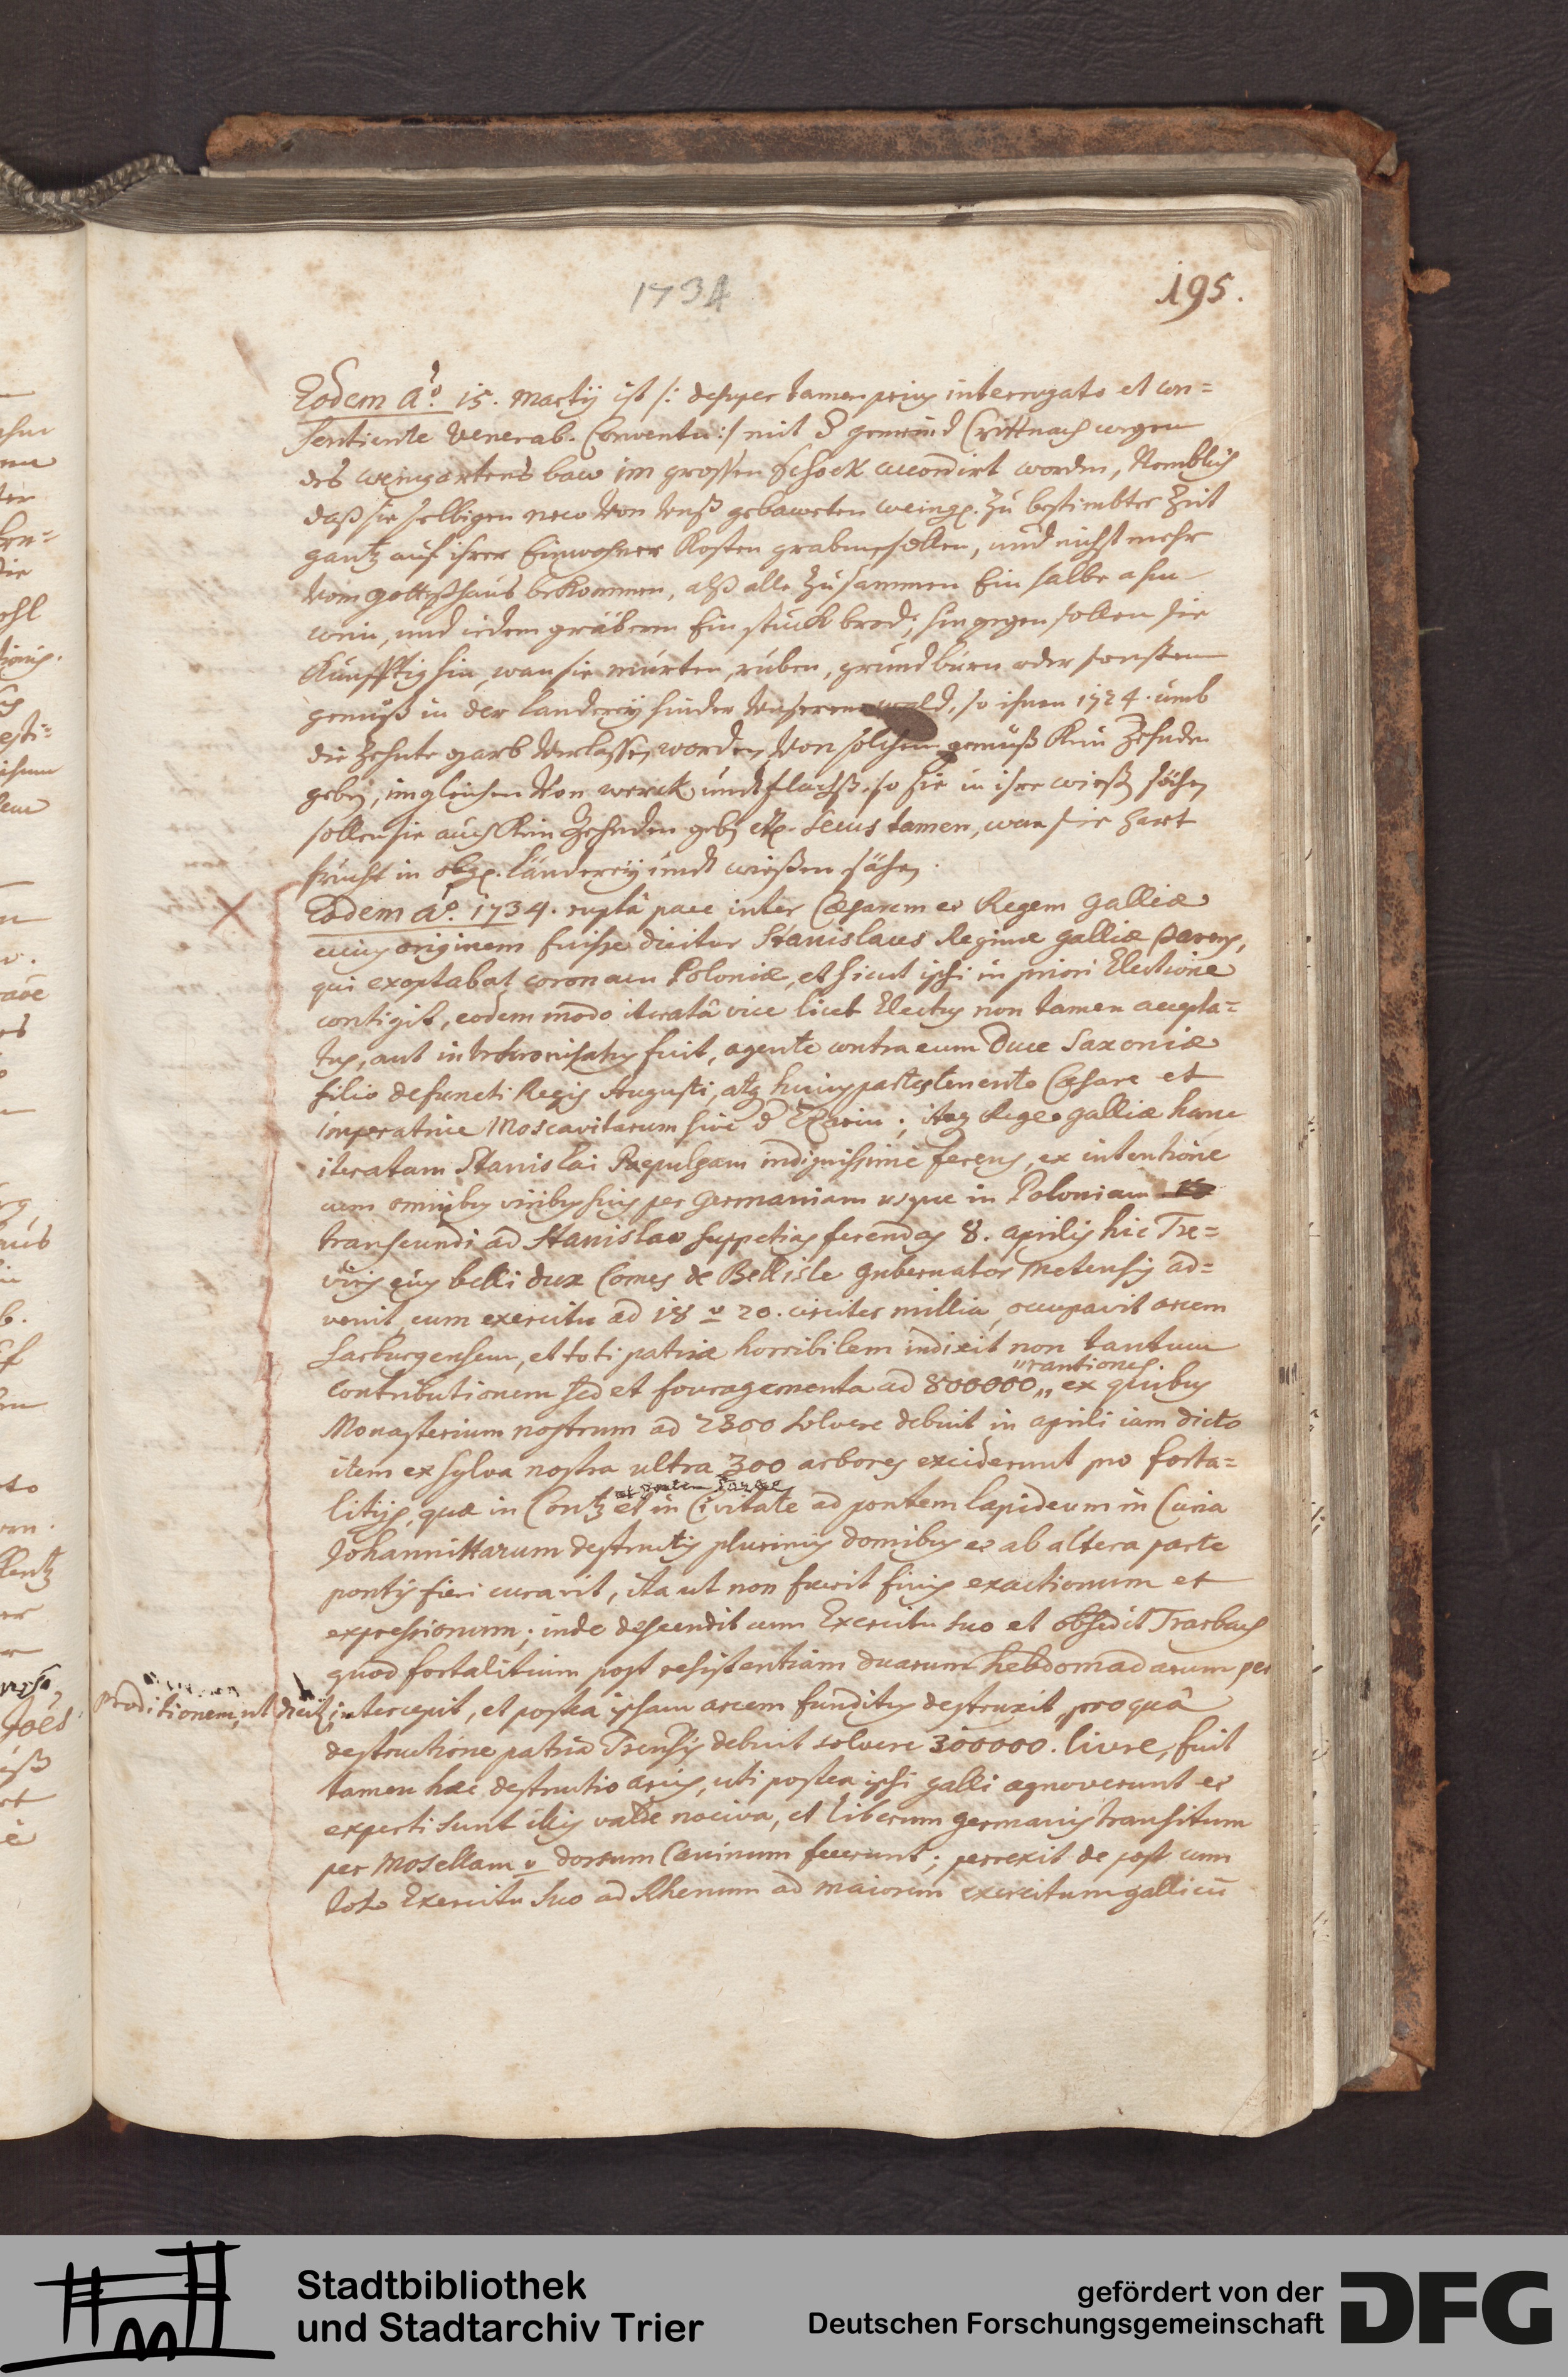 1734
195.
Eodem Aº. 15. Martÿ ist /: desuper tamen prius interrogato et con=
sentiente Venerab. Conventu :/ mit d gemeind Crittnach wegen
des weingartens baw im grossen Schock accordirt worden, Nemblich
daß sie selbigen new von unß gebaweten weing. zu bestimbter Zeit
gantz auf ihrer Einwohner Kosten graben sollen, und nichst mehr
vom gottßhaus bekommen, alß alle zusammen Ein halbe ahm
wein, und iedem gräberen Ein stück brod; hingegen sollen sie
Künfftighin, wan sie murten, ruben, grundbirn oder sonsten
gemüß in der landereÿ hinder unserem wald, so ihnen 1724. umb
die Zehnte garb verlassen worden, von solchem gemüß Kein Zehnden
geben, imgleichen von werck undt flachß, so sie in ihre wießen sähen
sollen sie auch Kein Zehnden geben etc. secus tamen, wan sie hart
frucht in obg. ländereÿ undt wießen sähen.
Eodem Aº. 1734. ruptâ pace inter Cæsarem et Regem Galliæ
cuius originem fuisse dicitur Stanislaus Reginæ Galliæ Parens,
qui exoptabat coronam Poloniæ, et sicut ipsi in priori Electione
contigit, eodem modo iteratâ vice licet Electus non tamen accepta=
tus, aut inthronisatus fuit, agente contra eum Duce Saxoniæ
filio defuncti Regis Augusti, atq huius partes tenente Cæsare et
imperatrice Moscavitarum sive d Czarin; itaq Rege Galliæ hanc
iteratam Stanislai Repulsam indignissime ferens, ex intentione
cum omnibus viribus suis per Germaniam usque in Poloniam
transeundi ad Stanislao suppetias ferendas 8. Aprilis hic Tre=
viris eius belli dux Comes de Bellisle gubernator Metensis ad=
venit cum exercitu ad 18 v 20. circiter millia, occupavit arcem
Sarburgensem, et toti patriæ horribilem indixit non tantum
contributionem sed et fouragementa ad 800000 „ rantiones. ex quibus
Monasterium nostrum ad 2300 solvere debuit in aprili iam dicto
item ex sylva nostra ultra 300 arbores exciderunt pro forta=
litijs, quæ in Contz et in Civitate ad pontem lapideum in Curia
Johannittarum destructis plurimis domibus et ab altera parte
pontis fieri curavit, ita ut non fuerit finis exactionum et
expressionum; inde descendit cum Exercitu suo et obsedit Trarbach
quod fortalitium post resistentiam duarum hebdomadarum per
proditionem, ut dicitur intercepit, et postea ipsam arcem funditus destruxit, pro quâ
destructione patria Trensis debuit solvere 300000. livre, fuit
tamen hæc destructio arcis, uti postea ipsi galli agnoverunt et
experti sunt illis valde nociva, et liberum germanis transitum
per Mosellam v dorsum Caninum fecerunt; perrexit de post cum
toto Exercitu suo ad Rhenum ad maiorem exercitum gallicū
Stadtbibliothek
und Stadtarchiv Trier
gefördert von der
Deutschen Forschungsgemeinschaft
DFG